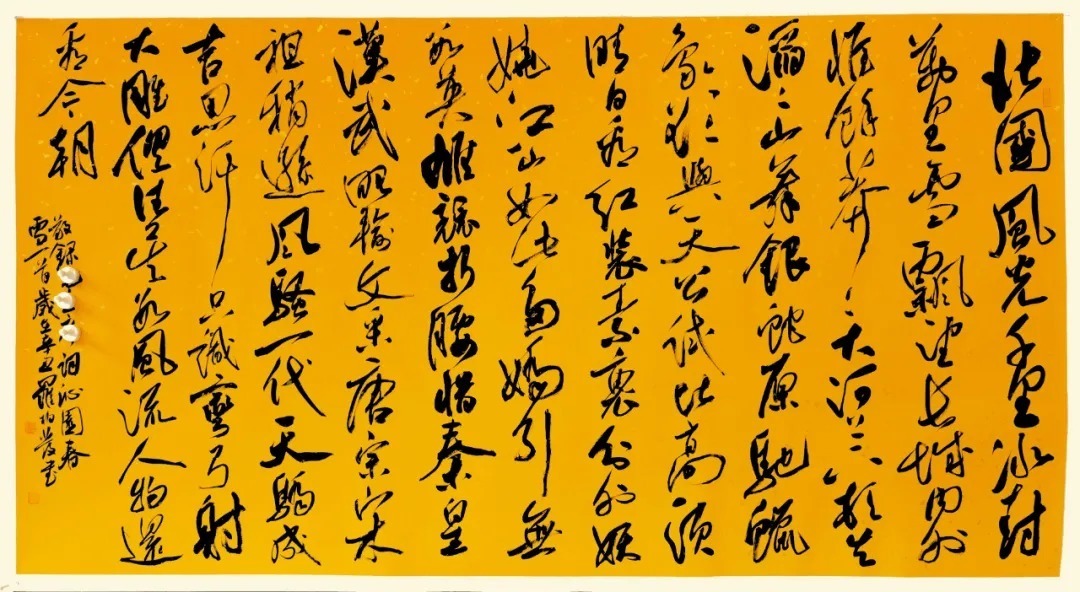 北國風光千里冰封
萬里雪飄望長城內外
惟餘莽々大河上下頓失
滔々山舞銀蛇原馳蠟
象欲與天公試比高須
晴日看紅裝素裹分外妖
嬈江山如此多嬌引無
數英雄競折腰惜秦皇
漢武略輸文采唐宗宋
祖稍遜風騷一代天驕成
吉思汗只識彎弓射
大雕俱往矣數風流人物還
看今朝
敬錄詞沁園春
雪一首歲在辛丑羅柏書